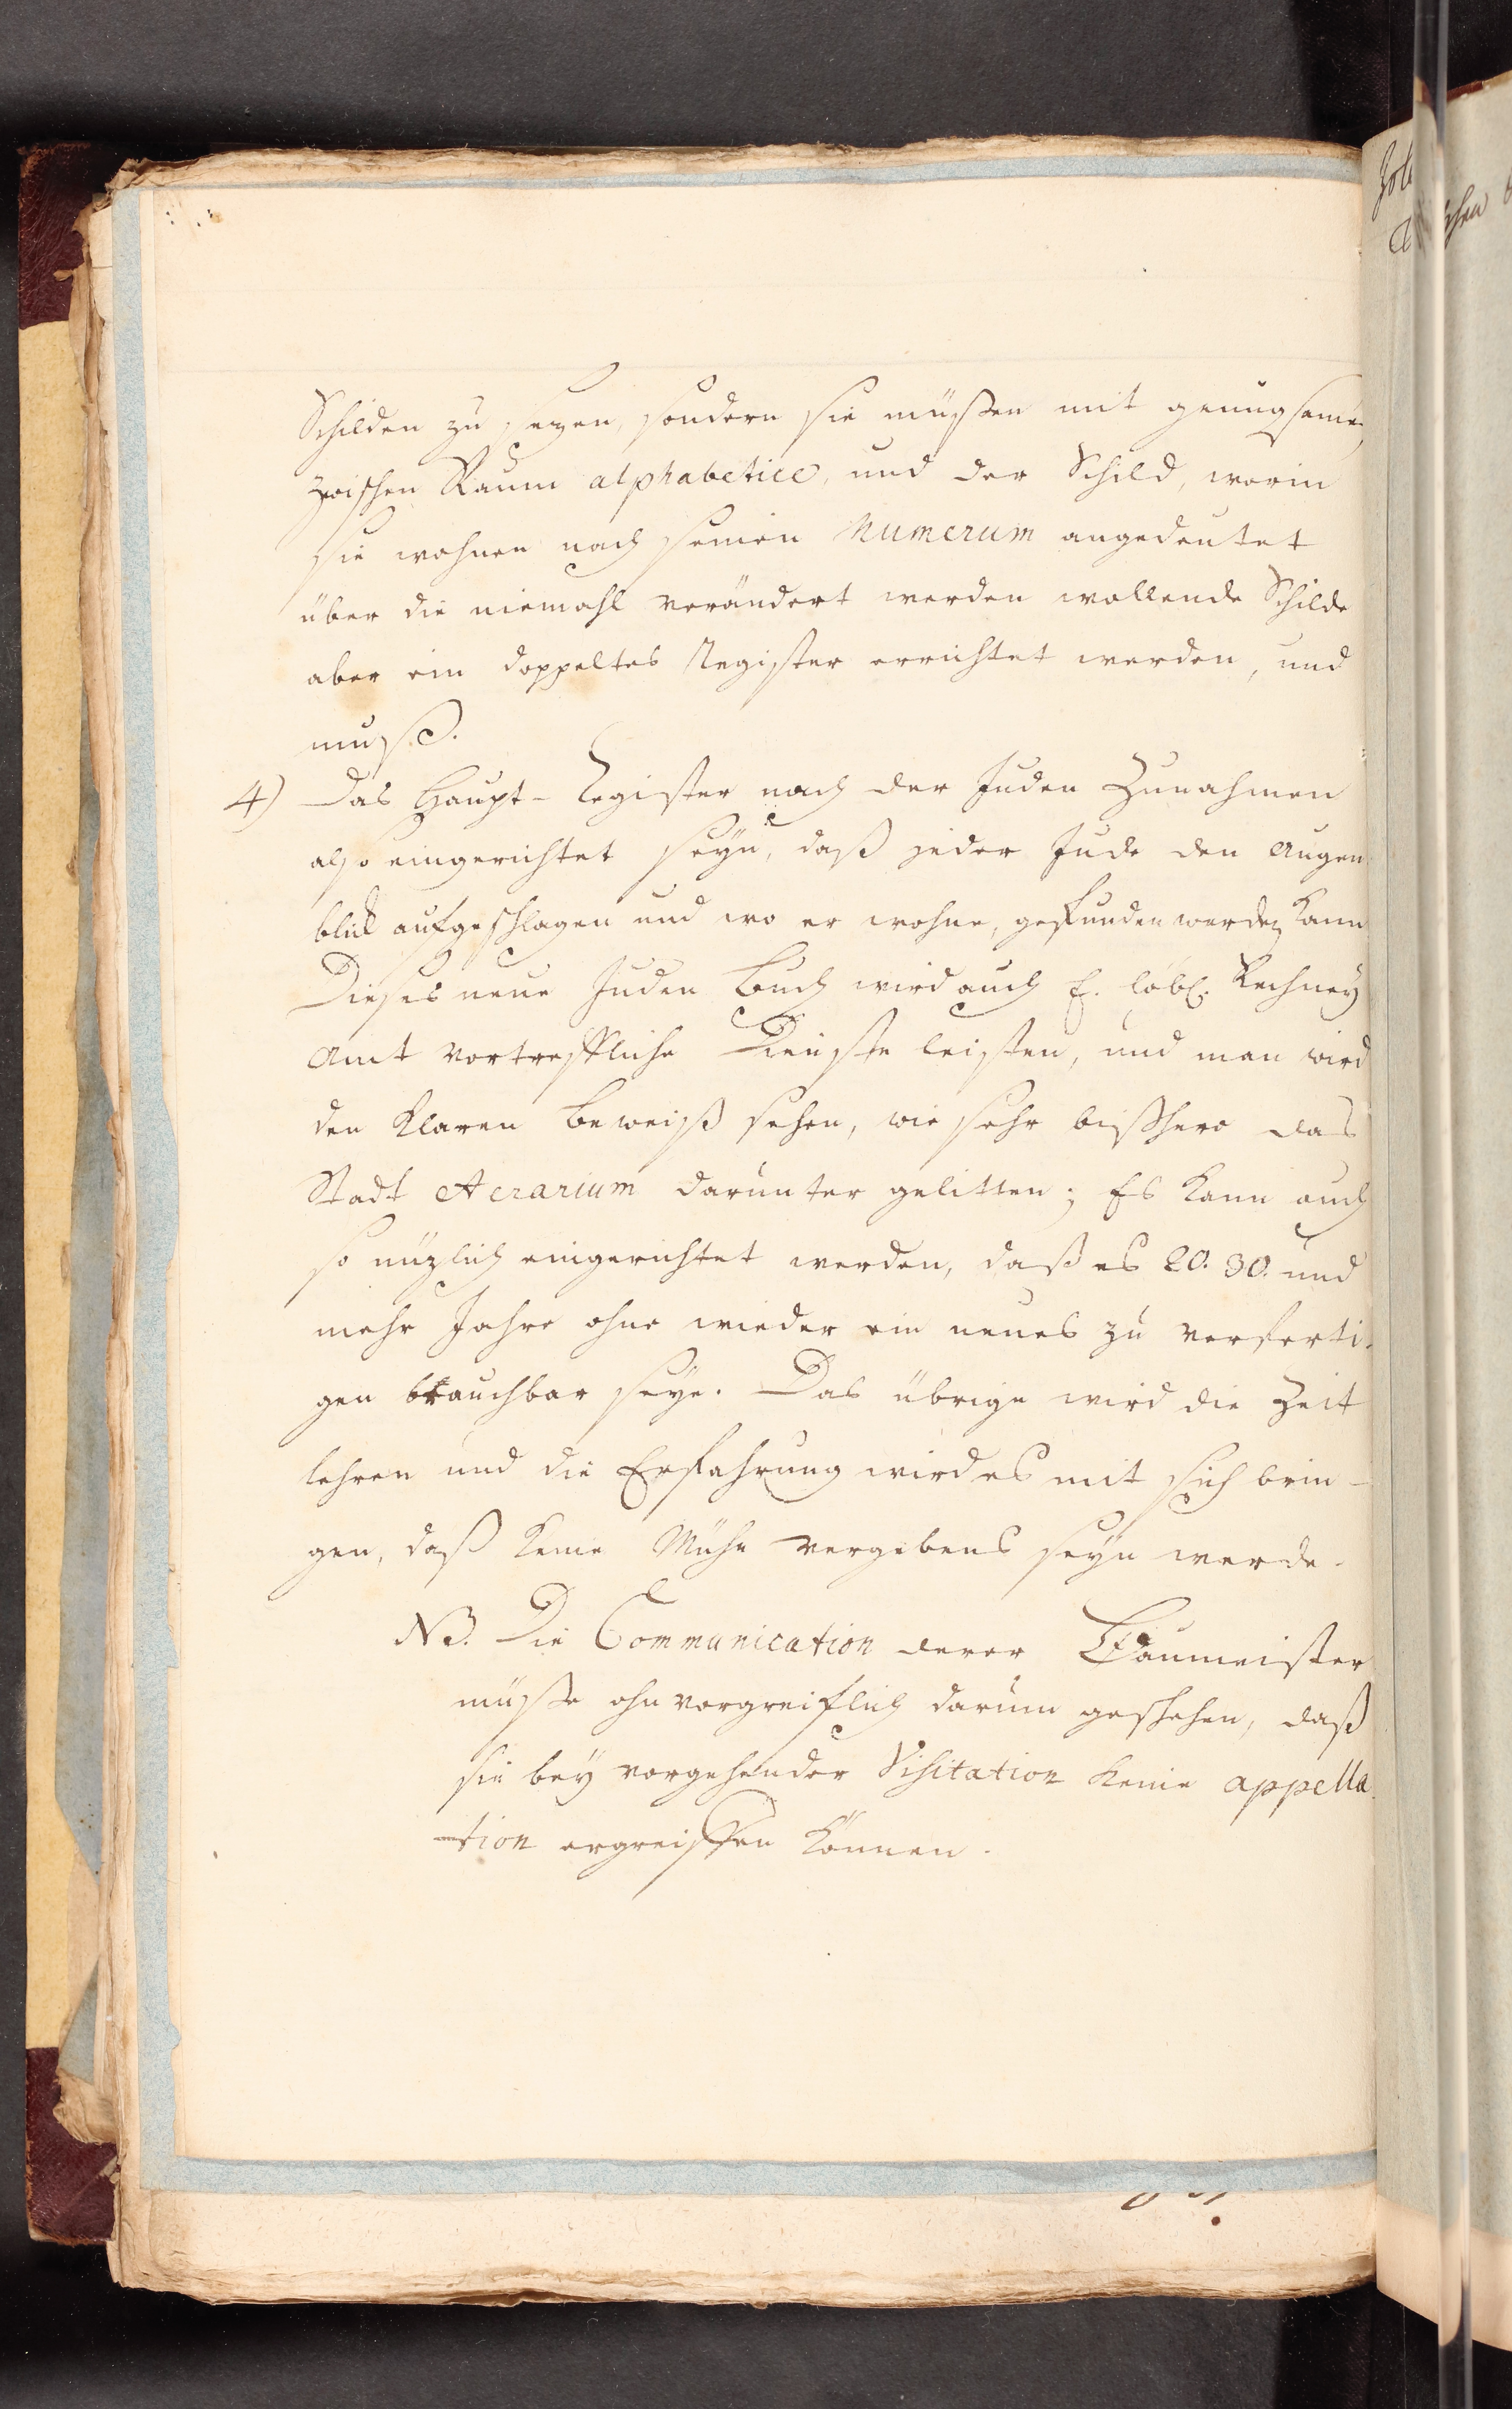 Schilden zu sezen, sondern sie müßen mit genugsamen
zwischen Raum alphabetice, und der Schild, worin
sie wohnen nach seinen Numerum angedeutet
über die niemahl verändert werden wollende Schilde
aber ein doppeltes Register errichtet werden, und
muß.
4) Das Haupt-Register nach der Juden Zunahmen
also eingerichtet seyn, daß jeder Jude den Augen
blick aufgeschlagen und wo er wohne, gefunden werden kann
Dieses neue Juden Buch wird auch E. löbl. Rechney
Amt vortreffliche Dienste leisten, und man wird
den klaren Beweiß sehen, wie sehr bißhero das
Stadt Aerarium darunter gelitten; Es kann auch
so nüzlich eingerichtet werden, daß es 20. 30. und
mehr Jahre ohne wieder ein neues zu verferti-
gen brauchbar seye. Das übrige wird die Zeit
lehren und die Erfahrung wird es mit sich brin-
gen, daß keine Mühe vergebens seyn werde.
NB. Die Communication derer Baumeister
müßte ohnvorgreiflich darum geschehen, daß
sie bey vorgehender Visitation keine appella-
-tion ergreiffen können.